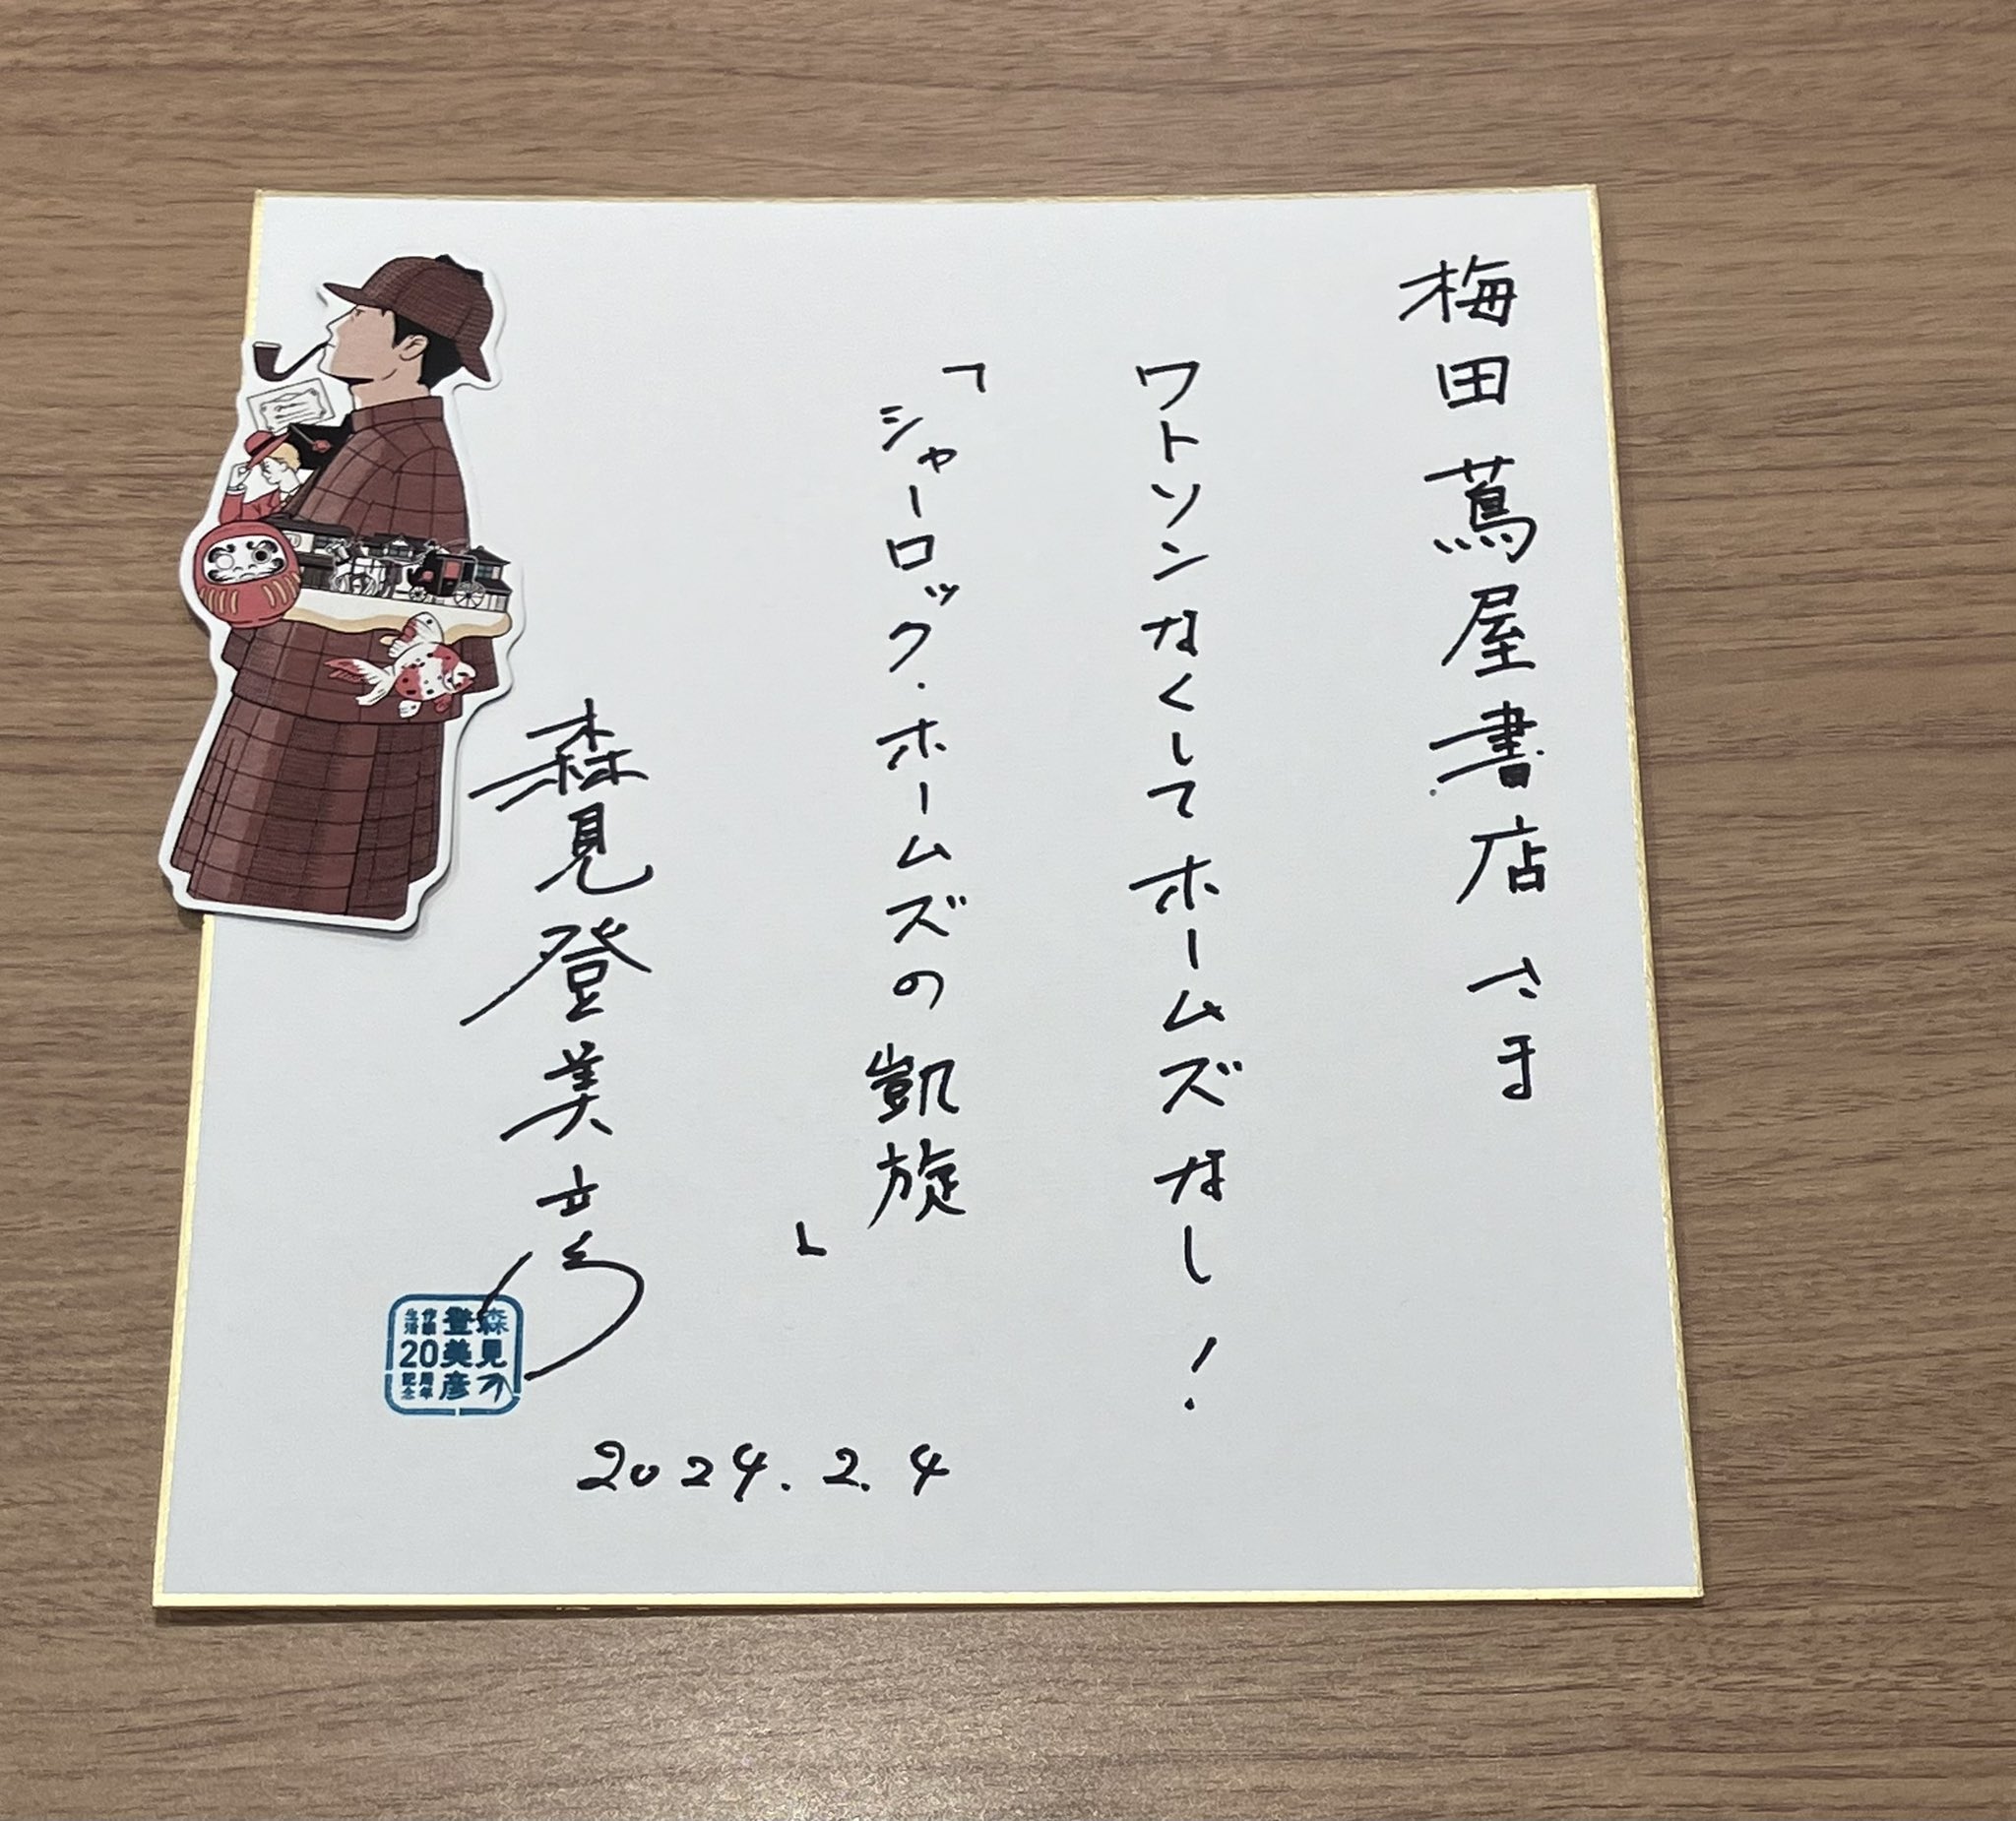 梅田 蔦屋書店 さま
ワトソンなくしてホームズなし!
「シャーロック・ホームズの凱旋」
森見登美彦
森見
登美彦
作家
生活
20
周年
記念
2024.2.4